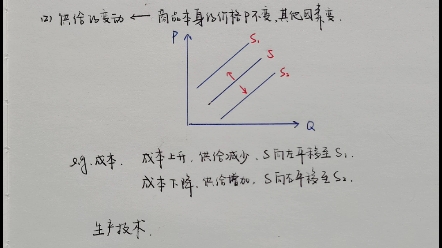 (2) 供给的变动 ← 商品本身的价格P不变,其他因素变.
P
S₁
S
S₂
Q
e.g. 成本. 成本上升,供给减少,S向左平移至S₁.
成本下降,供给增加,S向右平移至S₂.
生产技术.